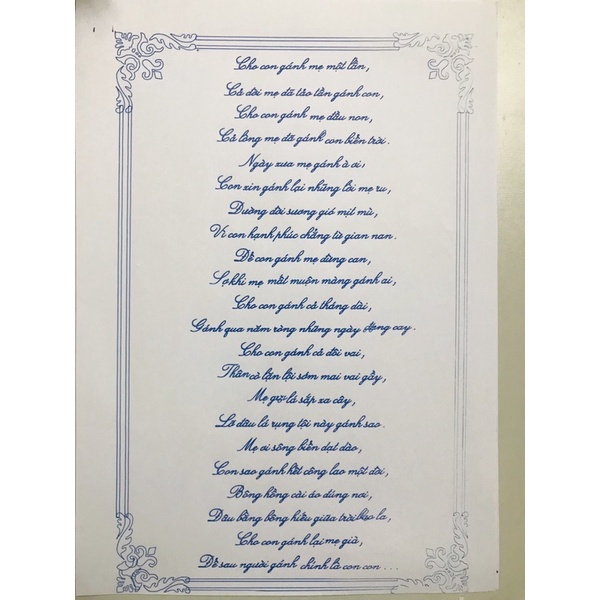 Cho con gánh mẹ một lần,
Cả đời mẹ đã tảo tần gánh con,
Cho con gánh mẹ đầu non,
Cả lòng mẹ đã gánh con biển trời.
Ngày xưa mẹ gánh à ơi,
Con xin gánh lại những lời mẹ ru,
Đường đời sương gió mịt mù,
Vì con hạnh phúc chẳng từ gian nan.
Để con gánh mẹ đừng can,
Sợ khi mẹ mất muộn màng gánh ai,
Cho con gánh cả tháng dài,
Gánh qua năm ròng những ngày đắng cay.
Cho con gánh cả đôi vai,
Thân cò lặn lội sớm mai vai gầy,
Mẹ giờ lá sắp xa cây,
Lỡ đâu lá rụng tội này gánh sao.
Mẹ ơi sóng biển dạt dào,
Con sao gánh hết công lao một đời,
Bông hồng cài áo đúng nơi,
Đâu bằng bông hiếu giữa trời bao la,
Cho con gánh lại mẹ già,
Để sau người gánh chính là con con ...